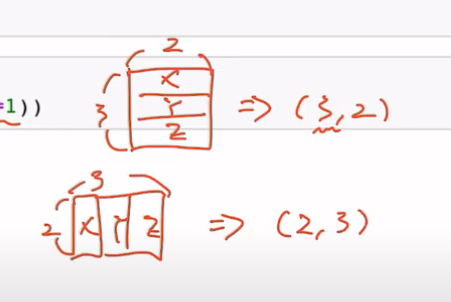 2
=1))
3
X
Y
Z
=> (3,2)
3
2
X Y Z
=> (2,3)